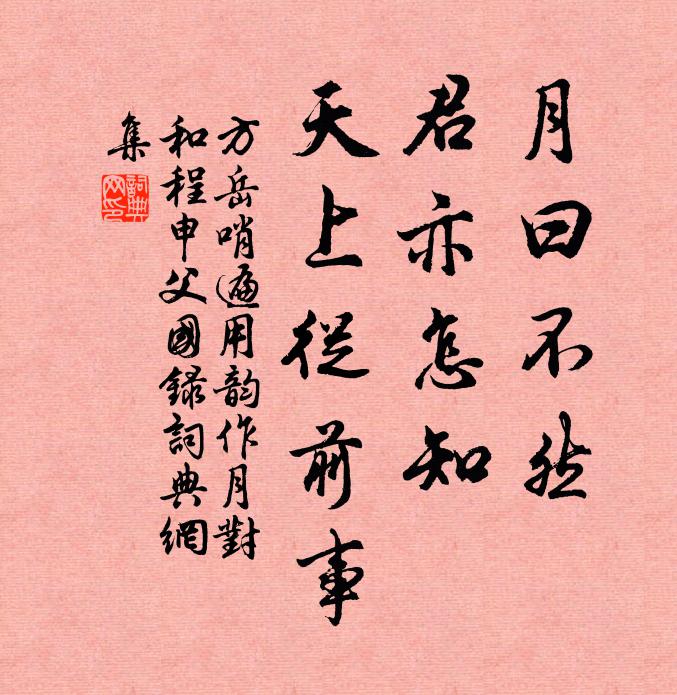 月曰不然
君亦怎知
天上從前事
方岳哨遍用韵作月對
和程申父國録詞典網
集
詞典网印